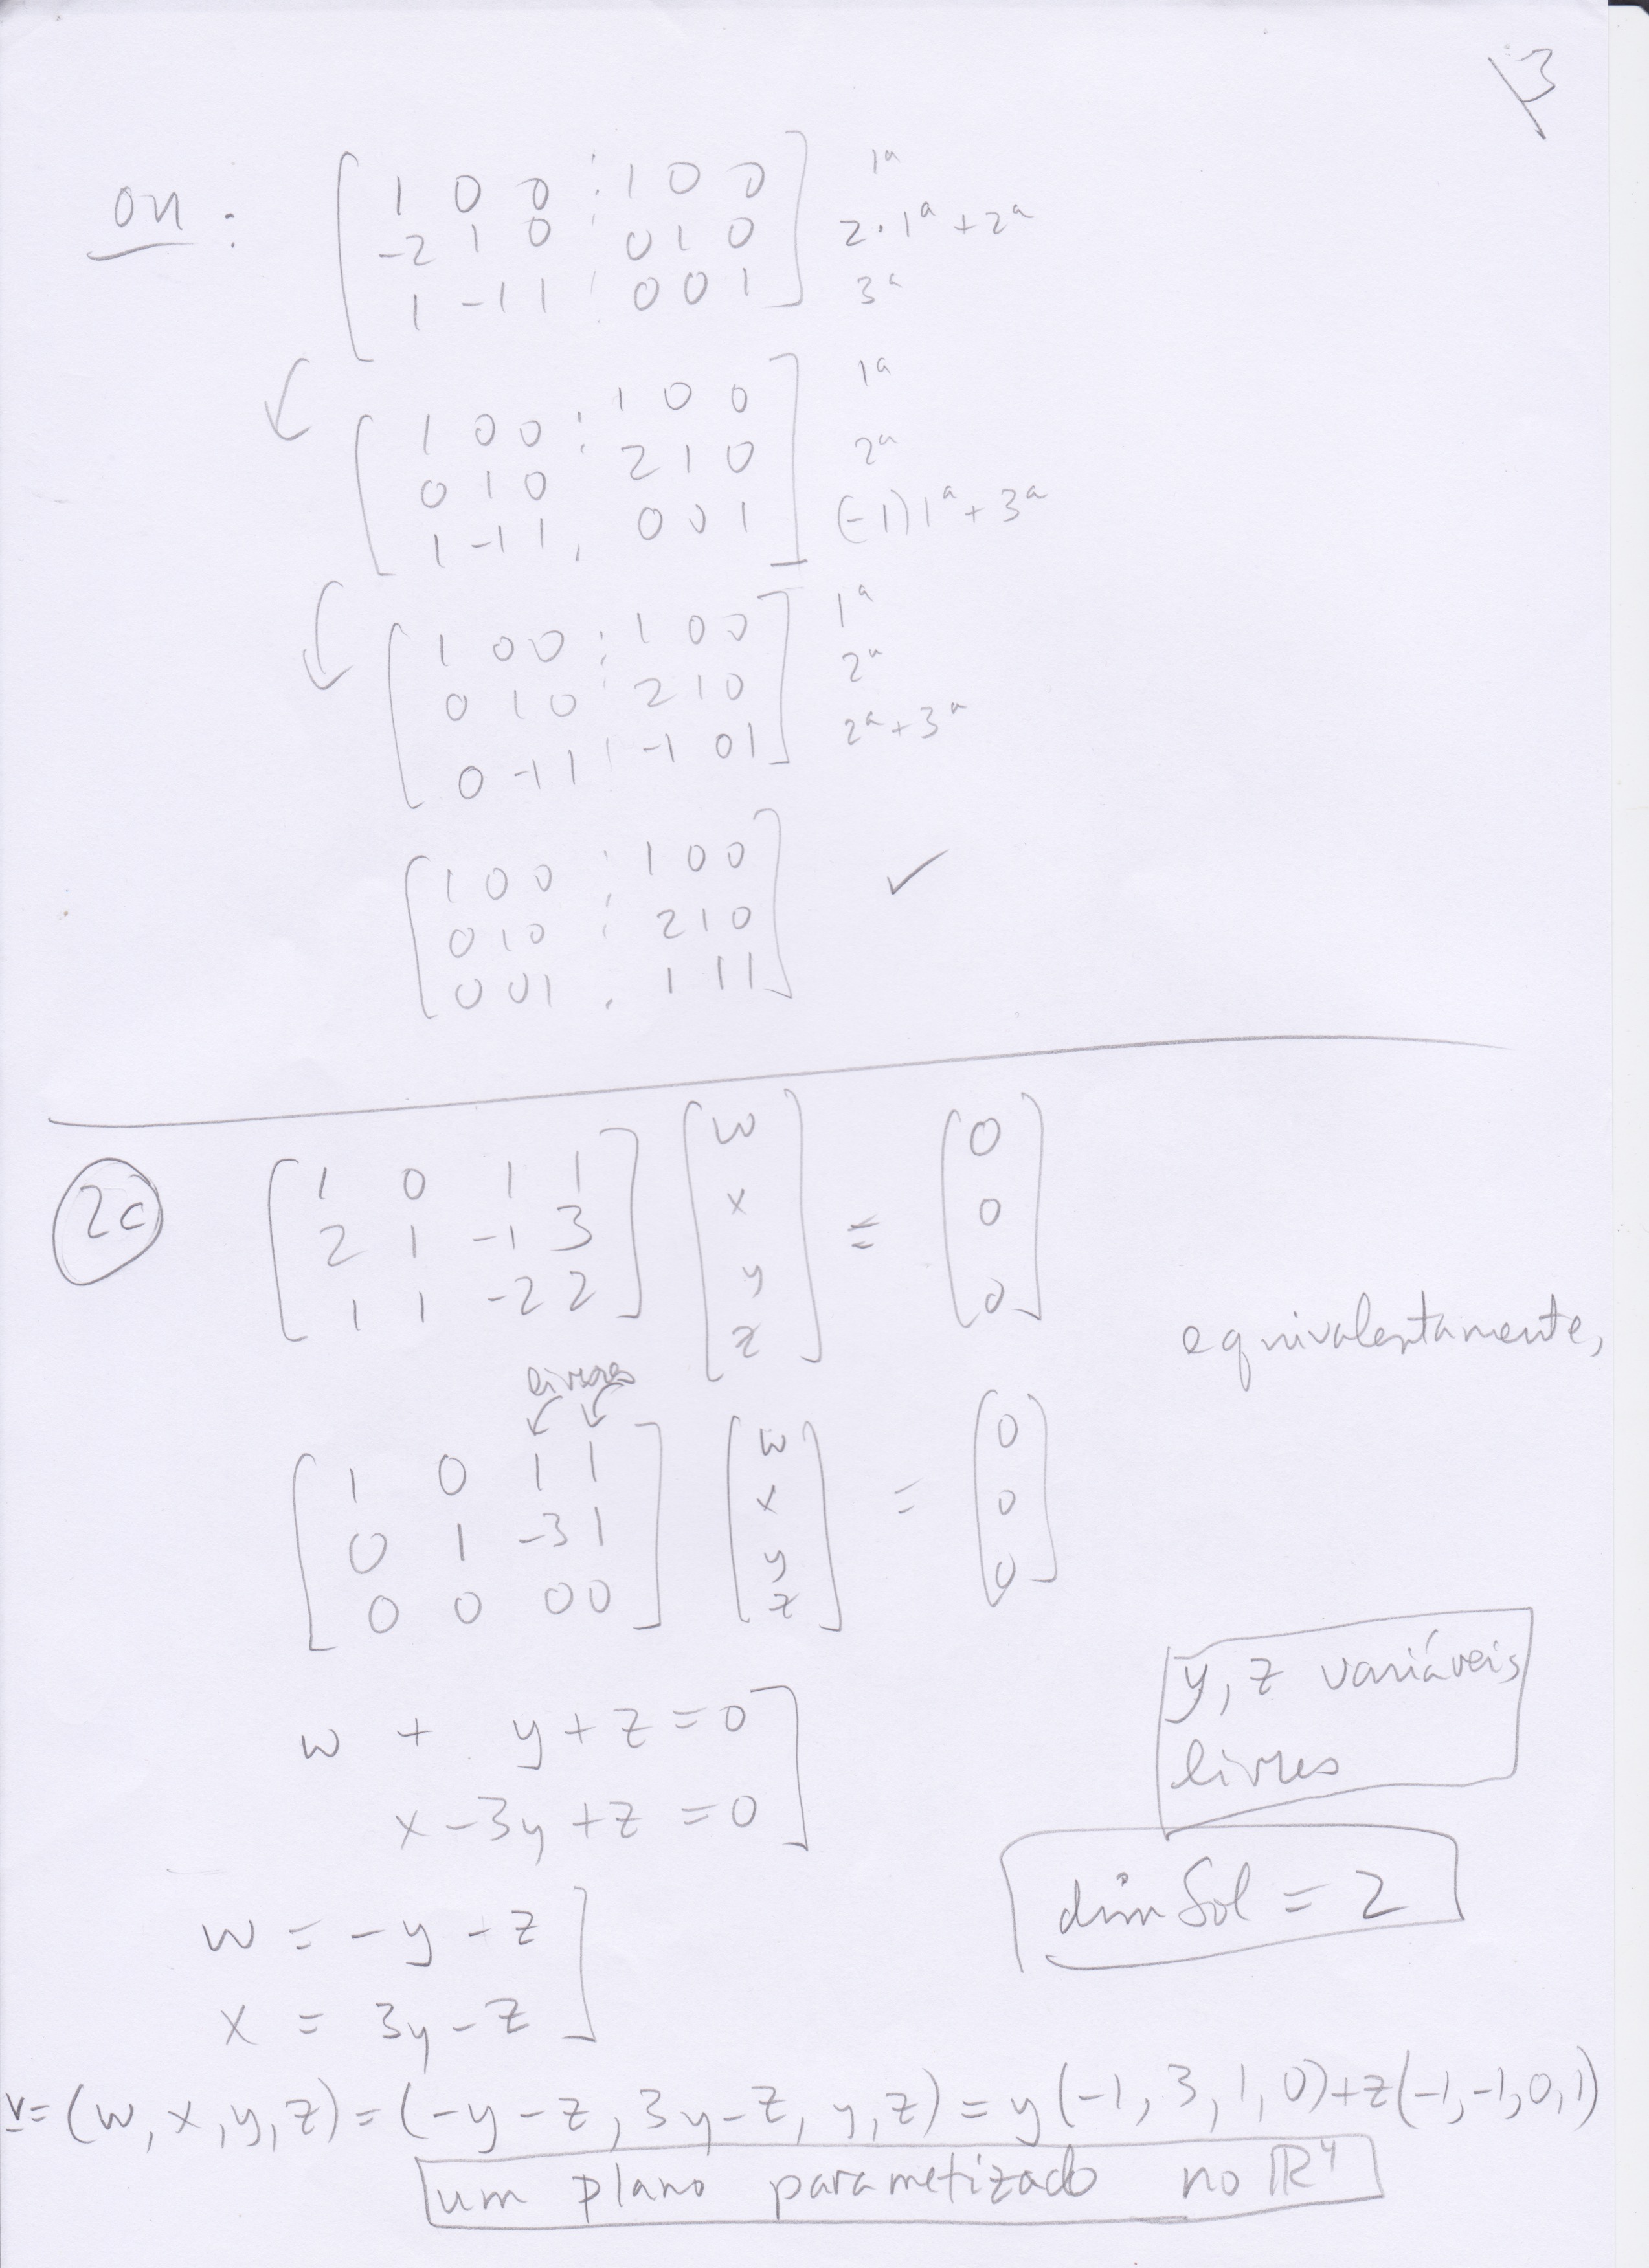 p3
ou:
[ 1 0 0 ⋮ 1 0 0 ] 1ª
[ -2 1 0 ⋮ 0 1 0 ] 2·1ª+2ª
[ 1 -1 1 ⋮ 0 0 1 ] 3ª
[ 1 0 0 ⋮ 1 0 0 ] 1ª
[ 0 1 0 ⋮ 2 1 0 ] 2ª
[ 1 -1 1 ⋮ 0 0 1 ] (-1)1ª+3ª
[ 1 0 0 ⋮ 1 0 0 ] 1ª
[ 0 1 0 ⋮ 2 1 0 ] 2ª
[ 0 -1 1 ⋮ -1 0 1 ] 2ª+3ª
[ 1 0 0 ⋮ 1 0 0 ] ✓
[ 0 1 0 ⋮ 2 1 0 ]
[ 0 0 1 ⋮ 1 1 1 ]
2c
[ 1 0 1 1 ] [ w ] = [ 0 ]
[ 2 1 -1 3 ] [ x ] [ 0 ]
[ 1 1 -2 2 ] [ y ] [ 0 ]
[ z ]
equivalentamente,
livres
[ 1 0 1 1 ] [ w ] = [ 0 ]
[ 0 1 -3 1 ] [ x ] [ 0 ]
[ 0 0 0 0 ] [ y ] [ 0 ]
[ z ]
y, z variáveis
livres
w + y + z = 0
x - 3y + z = 0
dim Sol = 2
w = -y - z
x = 3y - z
v = (w, x, y, z) = (-y-z, 3y-z, y, z) = y(-1, 3, 1, 0) + z(-1, -1, 0, 1)
um plano parametizado no ℝ⁴